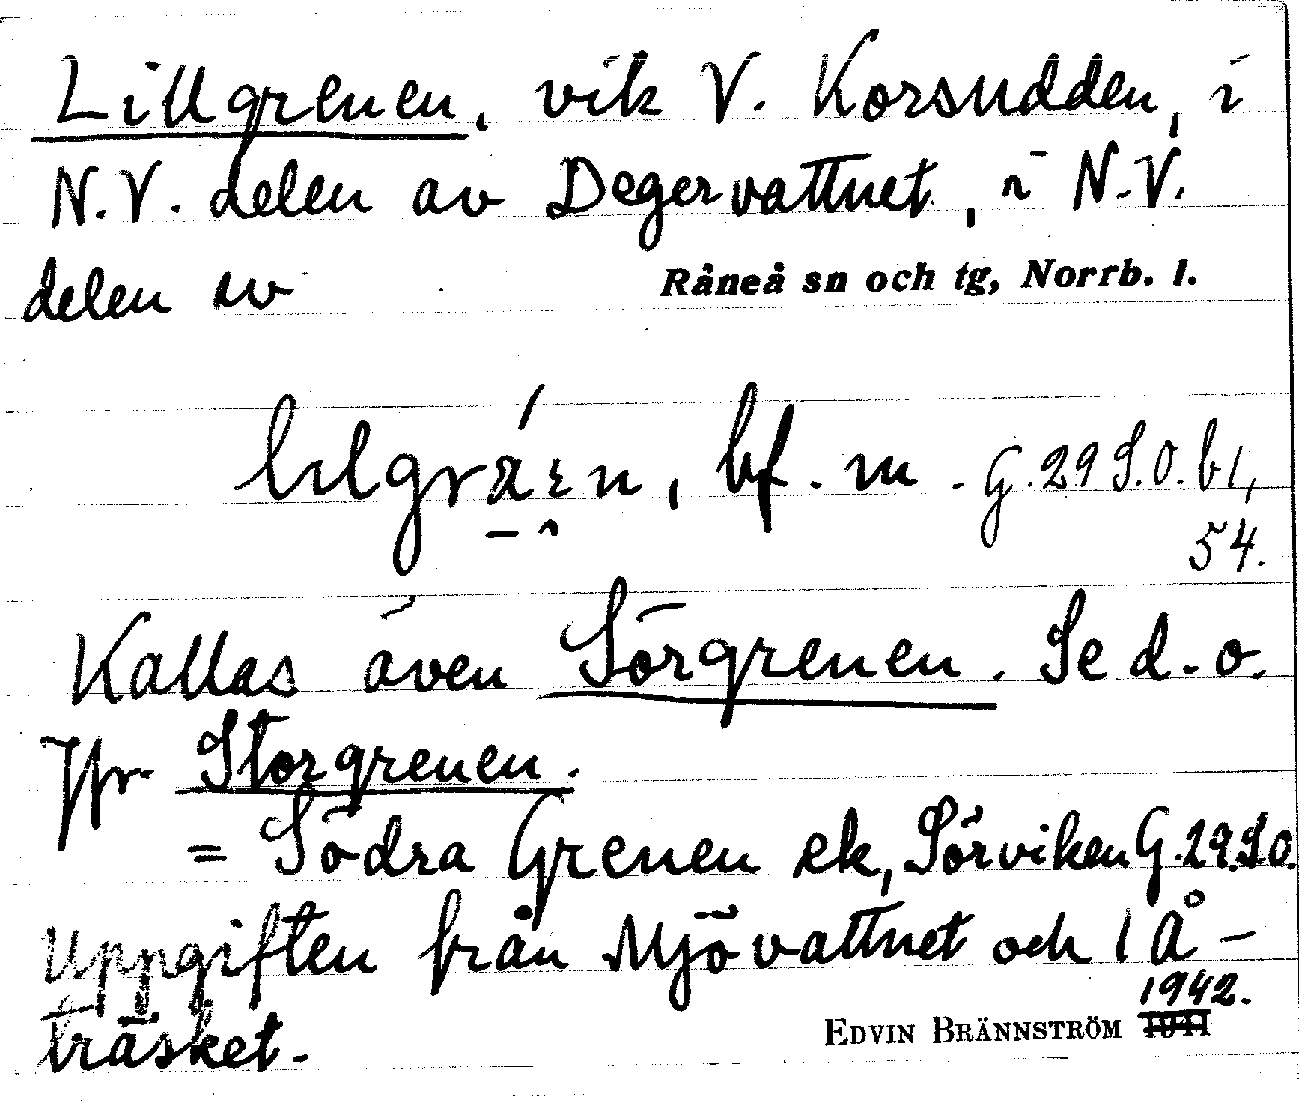 Lillgrenen, vik V. Korsudden, i
N.V. delen av Degervattnet, i N.V.
delen av
Råneå sn och tg, Norrb. l.
bf. m. G. 29 S.O. b1,
54.
Kallas även Sörgrenen. Se d. o.
Jfr Storgrenen.
= Södra Grenen ek, Sörviken G. 29 S.O.
Uppgiften från Mjövattnet och
träsket.
EDVIN BRÄNNSTRÖM 1942.